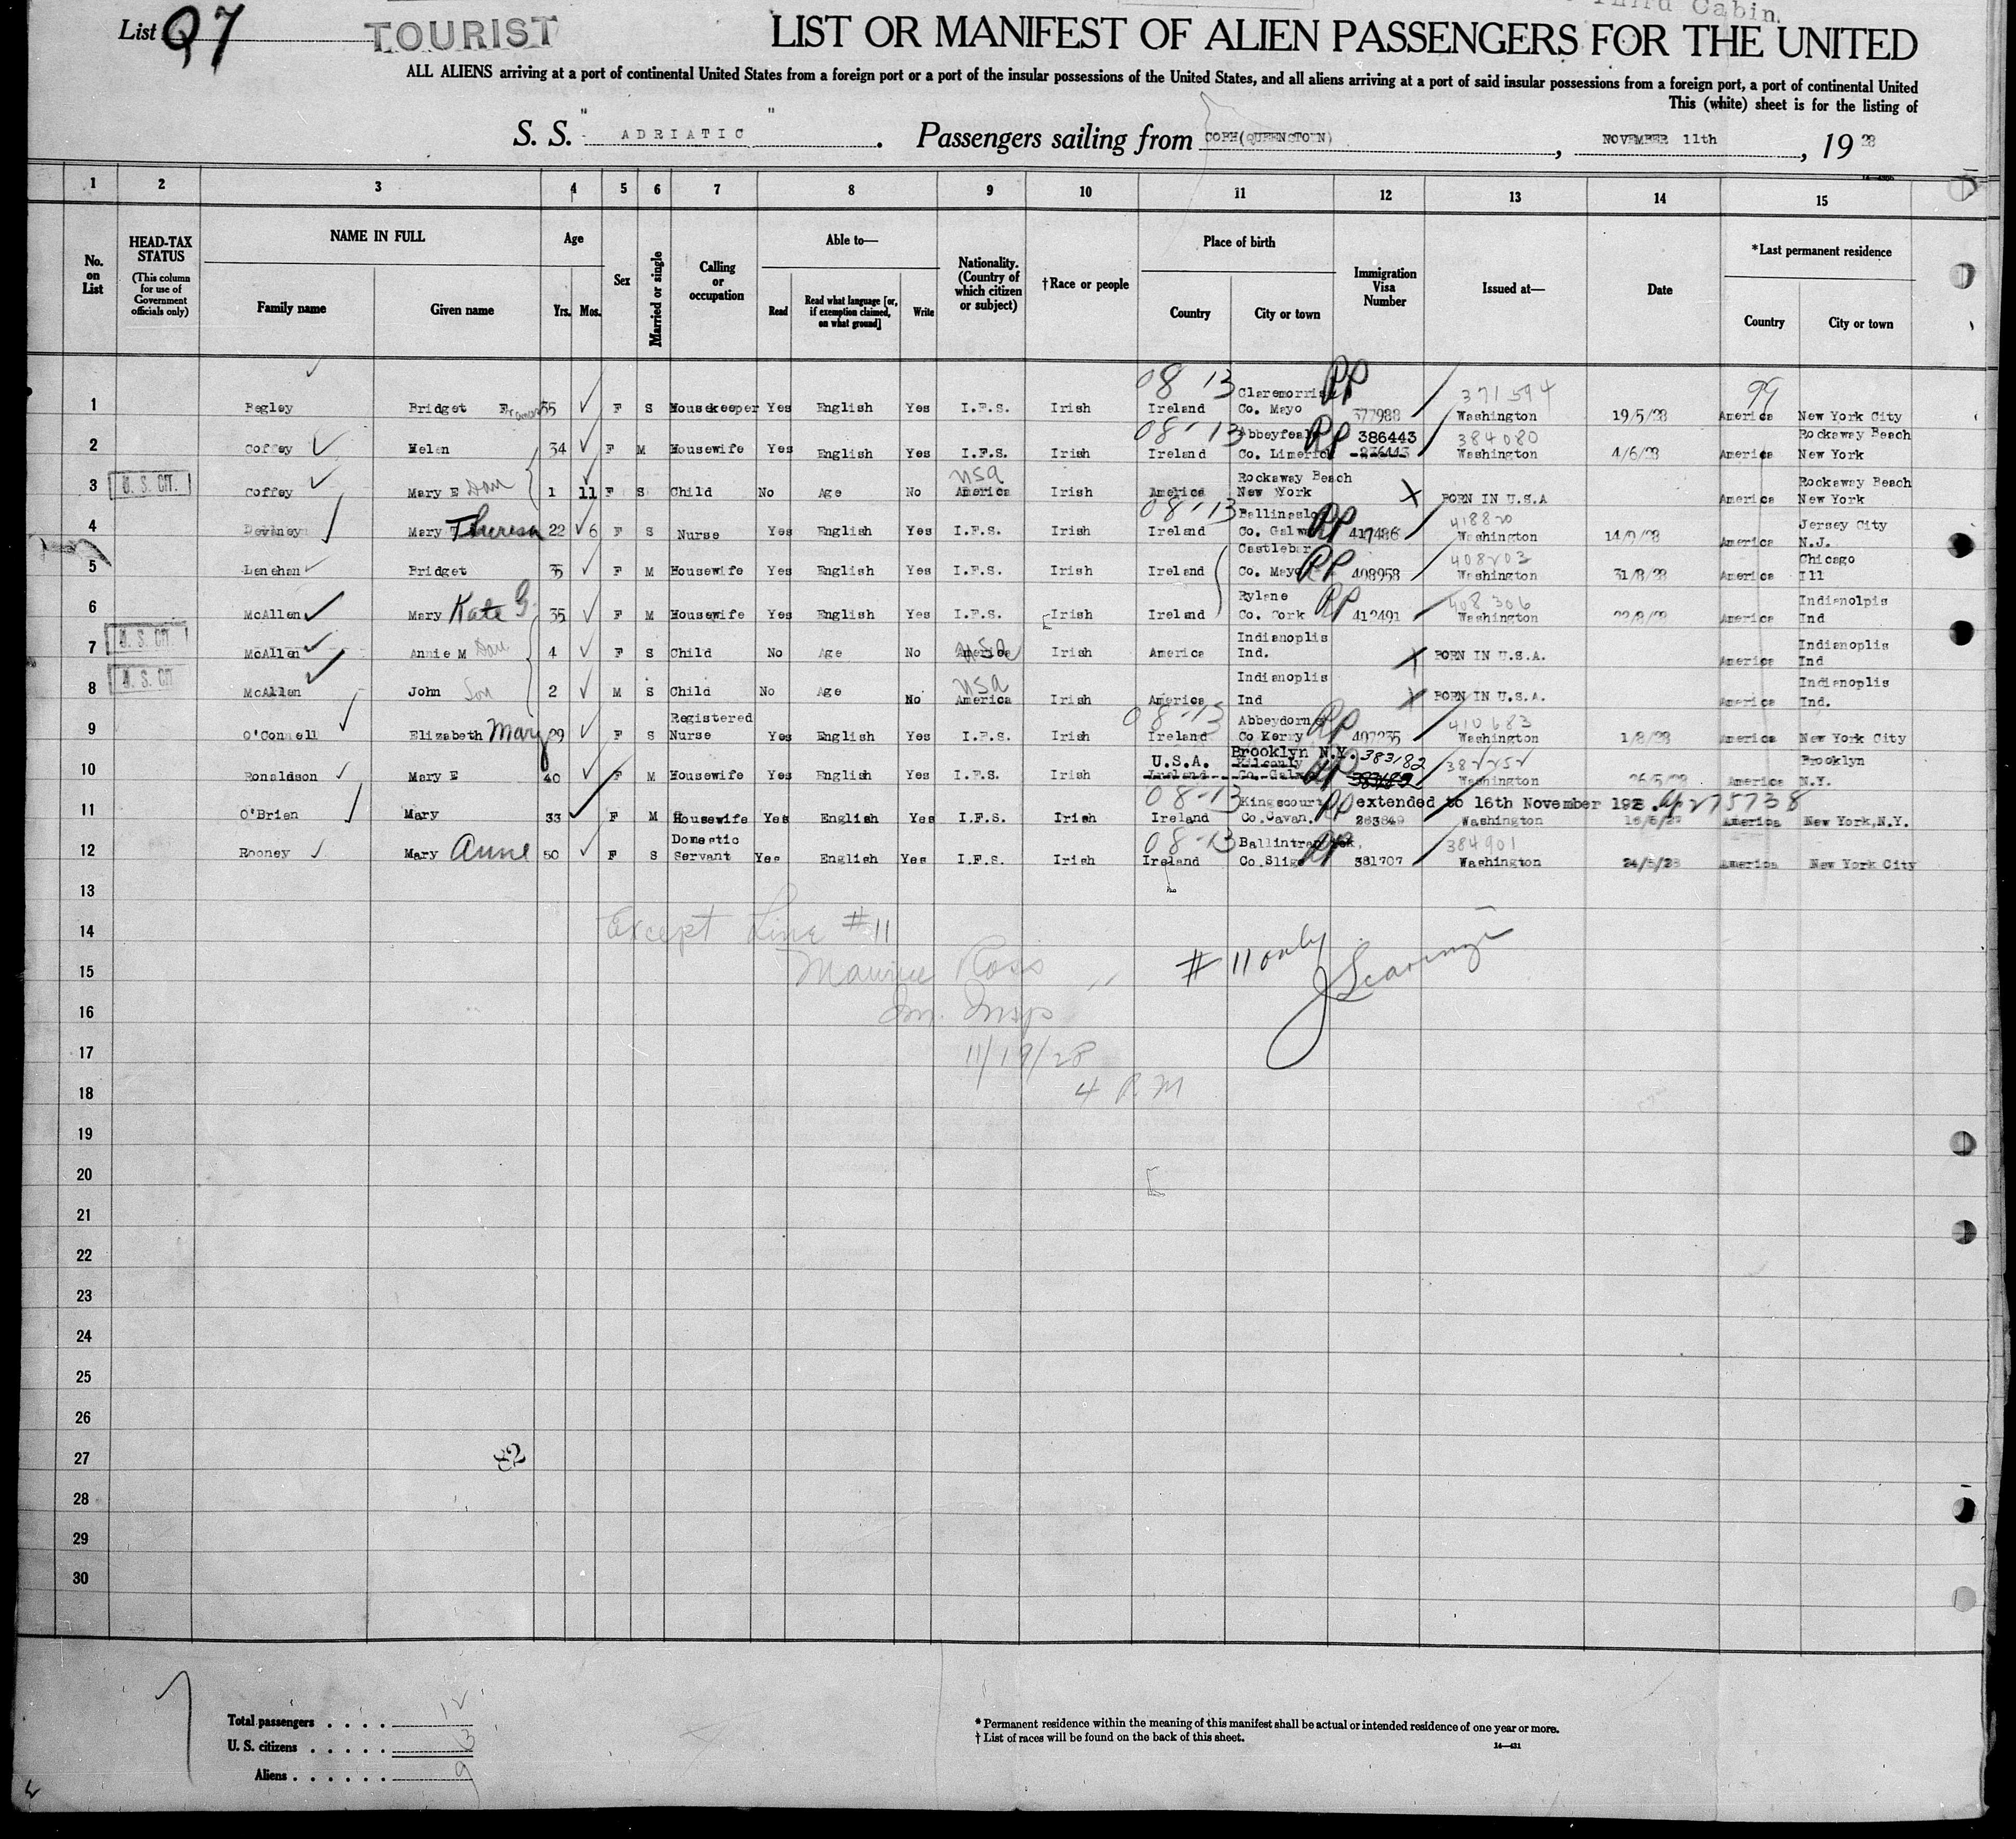 Third Cabin.
List Q7 TOURIST LIST OR MANIFEST OF ALIEN PASSENGERS FOR THE UNITED
ALL ALIENS arriving at a port of continental United States from a foreign port or a port of the insular possessions of the United States, and all aliens arriving at a port of said insular possessions from a foreign port, a port of continental United
This (white) sheet is for the listing of
S. S. "ADRIATIC". Passengers sailing from COBH(QUEENSTOWN), NOVEMBER 11th, 1928
1 2 3 4 5 6 7 8 9 10 11 12 13 14 15
No. on List
HEAD-TAX STATUS (This column for use of Government officials only)
NAME IN FULL
Family name Given name
Age
Yrs. Mos.
Sex
Married or single
Calling or occupation
Able to—
Read Read what language [or, if exemption claimed, on what ground] Write
Nationality. (Country of which citizen or subject)
†Race or people
Place of birth
Country City or town
Immigration Visa Number
Issued at—
Date
*Last permanent residence
Country City or town
1 Begley Bridget 35 F S Housekeeper Yes English Yes I.F.S. Irish 08-13 Ireland Claremorris Co. Mayo RP 377988 371594 Washington 19/5/28 99 America New York City
2 Coffey Helen 34 F M Housewife Yes English Yes I.F.S. Irish 08-13 Ireland Abbeyfeale Co. Limerick RP 386443 384080 Washington 4/6/28 America Rockaway Beach New York
3 U. S. CIT. Coffey Mary E Dau 1 11 F S Child No Age No USA America Irish America Rockaway Beach New York X BORN IN U.S.A America Rockaway Beach New York
4 Devaney Mary Theresa 22 6 F S Nurse Yes English Yes I.F.S. Irish 08-13 Ireland Ballinasloe Co. Galway RP 417486 418820 Washington 14/9/28 America Jersey City N.J.
5 Lenehan Bridget 35 F M Housewife Yes English Yes I.F.S. Irish Ireland Castlebar Co. Mayo RP 408958 408203 Washington 31/8/28 America Chicago Ill
6 McAllen Mary Kate G. 35 F M Housewife Yes English Yes I.F.S. Irish Ireland Rylane Co. Cork RP 412491 408306 Washington 22/8/28 America Indianolpis Ind
7 U. S. CIT. McAllen Annie M Dau 4 F S Child No Age No America USA Irish America Indianoplis Ind. X BORN IN U.S.A. America Indianoplis Ind
8 U. S. CIT McAllen John Son 2 M S Child No Age No USA America Irish America Indianoplis Ind X BORN IN U.S.A. America Indianoplis Ind.
9 O'Connell Elizabeth Mary 29 F S Registered Nurse Yes English Yes I.F.S. Irish 08-13 Ireland Abbeydorney Co Kerry RP 407235 410683 Washington 1/8/28 America New York City
10 Ronaldson Mary E 40 F M Housewife Yes English Yes I.F.S. Irish U.S.A. Ireland Brooklyn N.Y. Co. Galway RP 383182 382252 Washington 26/5/28 America Brooklyn N.Y.
11 O'Brien Mary 33 F M Housewife Yes English Yes I.F.S. Irish 08-13 Ireland Kingscourt Co.Cavan. RP extended to 16th November 1928. 275738 263849 Washington America New York,N.Y.
12 Rooney Mary Anne 50 F S Domestic Servant Yes English Yes I.F.S. Irish 08-13 Ireland Co.Sligo RP 381707 384901 Washington 24/5/28 America New York City
13
14 Except Line #11
15 Maurice Ross #11 only J Scaringi
16 Im. Insp
17 11/19/28
18 4 P.M
19
20
21
22
23
24
25
26
27 82
28
29
30
Total passengers . . . . 12
U. S. citizens . . . . . 3
Aliens . . . . . . 9
* Permanent residence within the meaning of this manifest shall be actual or intended residence of one year or more.
† List of races will be found on the back of this sheet.
14—431